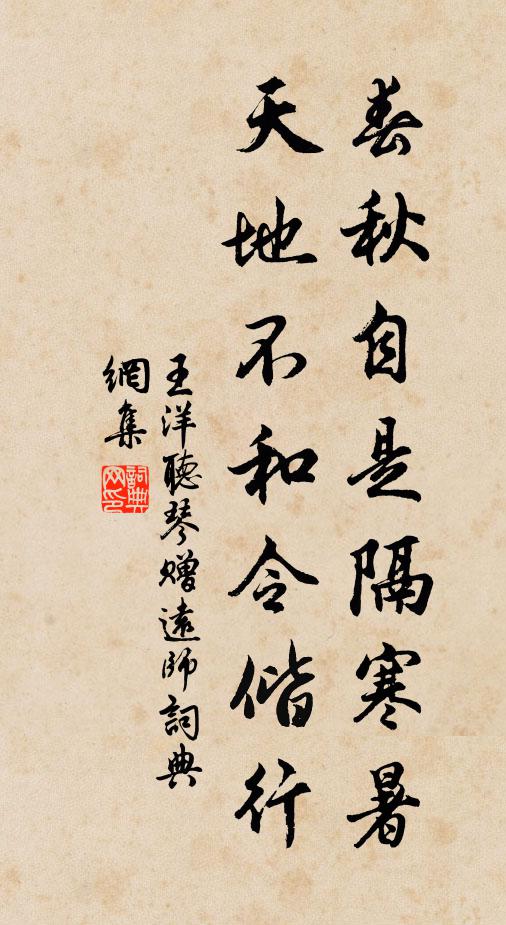 春秋自是隔寒暑
天地不和令偕行
王洋聽琴贈遠師詞典
網集
詞典
网印